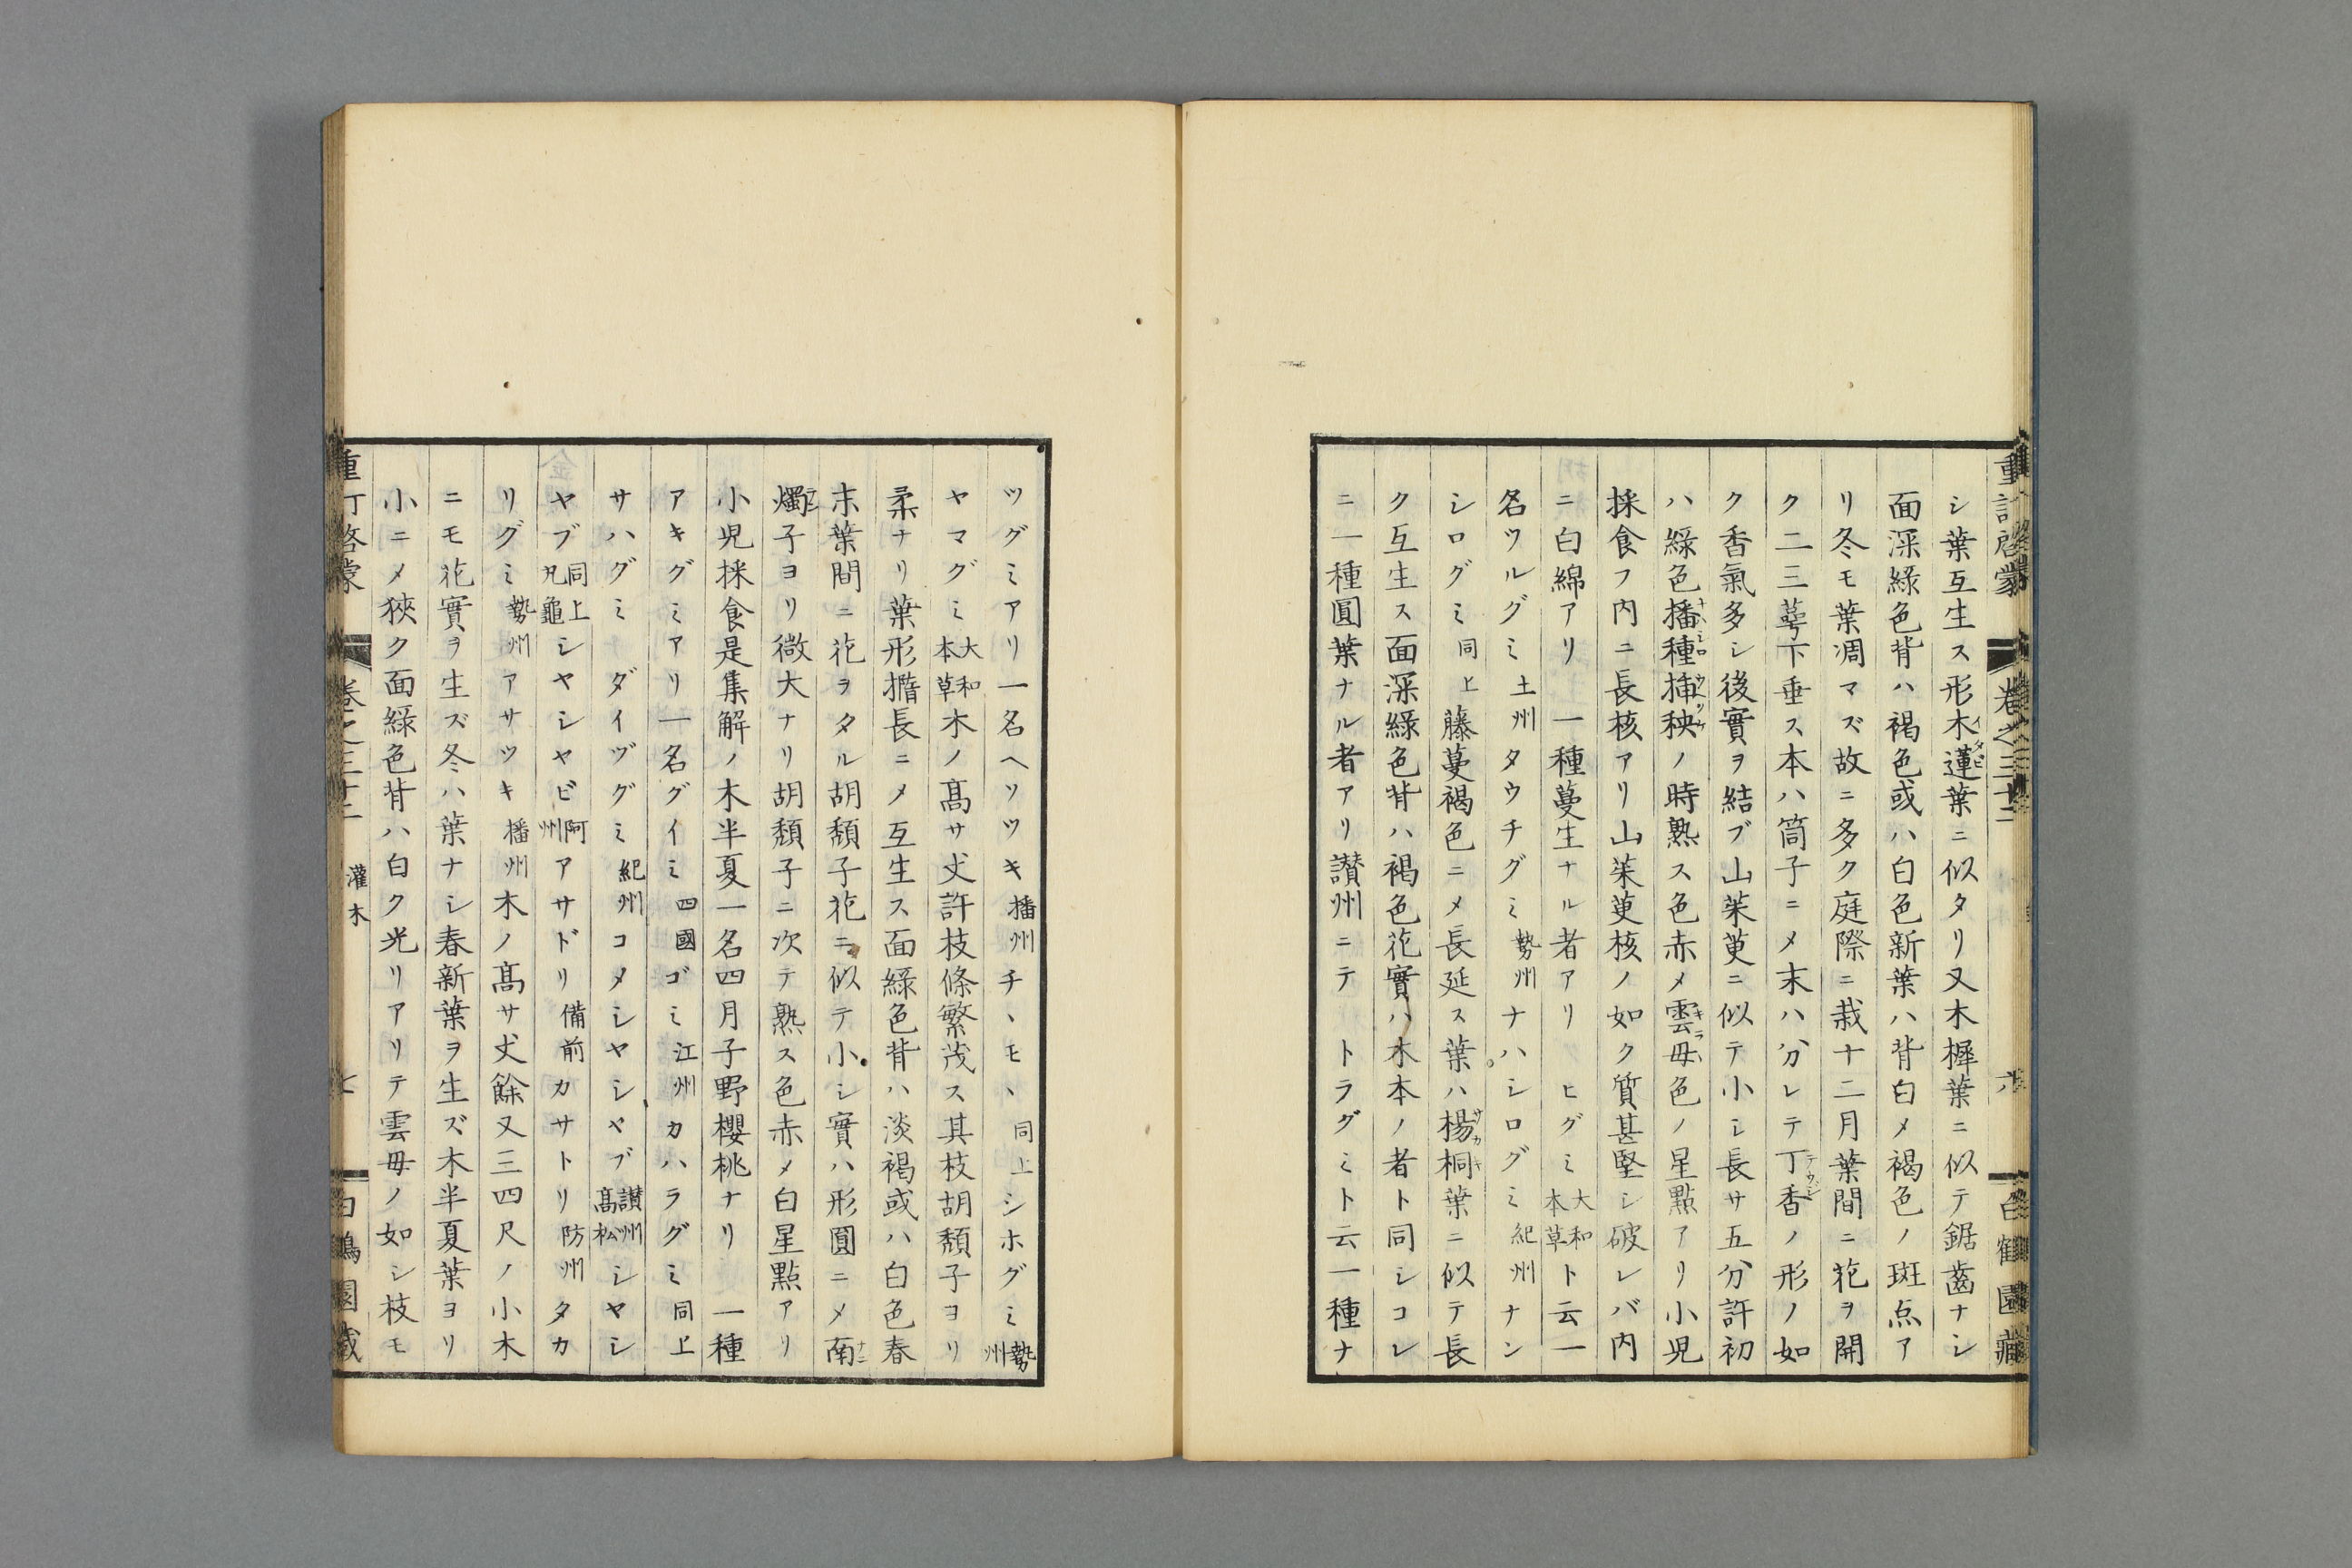 シ葉互生ス形木蓮葉ニ似タリ又木樨葉ニ似テ鋸齒ナシ
面深綠色背ハ褐色或ハ白色新葉ハ背白〆褐色ノ斑点ア
リ冬モ葉凋マズ故ニ多ク庭際ニ栽十二月葉間ニ花ヲ開
ク二三萼下垂ス本ハ筒子ニ〆末ハ分レテ丁香ノ形ノ如
ク香氣多シ後實ヲ結ブ山茱萸ニ似テ小シ長サ五分許初
ハ綠色播種挿秧ノ時熟ス色赤〆雲母色ノ星點アリ小児
採食フ内ニ長核アリ山茱萸核ノ如ク質甚堅シ破レバ内
ニ白綿アリ 一種蔓生ナル者アリ ヒグミ大和本草ト云一
名ツルグミ土州タウチグミ勢州ナハシログミ紀州ナン
シログミ同上藤蔓褐色ニ〆長延ス葉ハ楊桐葉ニ似テ長
ク互生ス面深綠色背ハ褐色花實ハ木本ノ者ト同シコレ
ニ一種圓葉ナル者アリ讃州ニテ トラグミト云一種ナ
ツグミアリ一名ヘソツキ播州チヽモヽ同上シホグミ勢州
ヤマグミ大和本草木ノ高サ丈許枝條繁茂ス其枝胡頽子ヨリ
柔ナリ葉形橢長ニ〆互生ス面綠色背ハ淡褐或ハ白色春
末葉間ニ花ヲタル胡頽子花ニ似テ小シ實ハ形圓ニ〆南
燭子ヨリ微大ナリ胡頽子ニ次テ熟ス色赤〆白星點アリ
小児採食是集解ノ木半夏一名四月子野櫻桃ナリ 一種
アキグミアリ一名グイミ四國ゴミ江州カハラグミ同上
サハグミ ダイヅグミ紀州コメシヤシヤブ讃州高松シヤシ
ヤブ同上丸龜シヤシヤビ阿州アサドリ備前カサトリ防州タカ
リグミ勢州アサツキ播州木ノ高サ丈餘又三四尺ノ小木
ニモ花實ヲ生ズ冬ハ葉ナシ春新葉ヲ生ズ木半夏葉ヨリ
小ニ〆狹ク面綠色背ハ白ク光リアリテ雲母ノ如シ枝モ
灌木